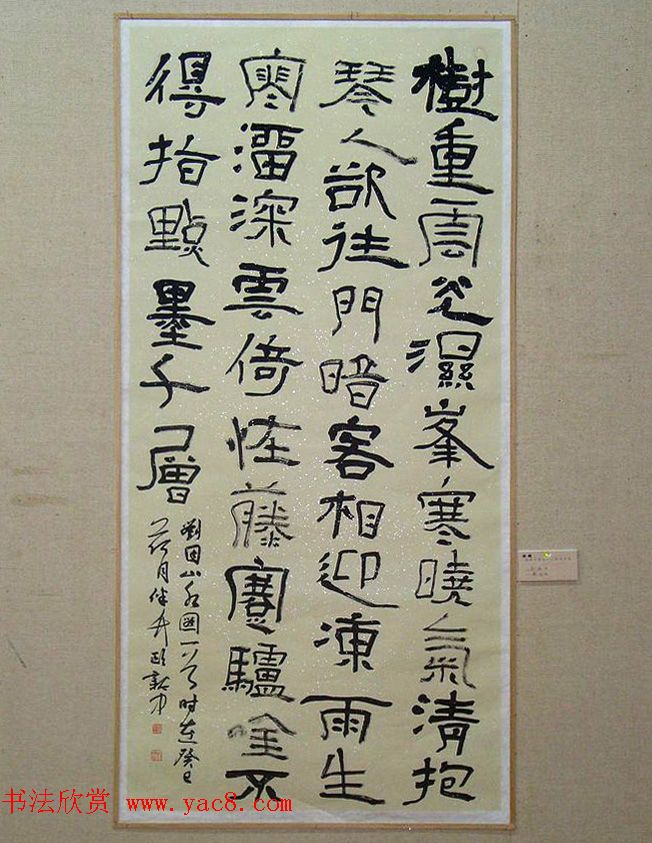 樹重雲光濕峯寒曉氣清抱
琴人欲往門暗客相迎凍雨生
寒溜深雲倚怪藤蹇驢全不
得指點墨千層
劉因山水圖一首時在癸巳
荷月
书法欣赏 www.yac8.com